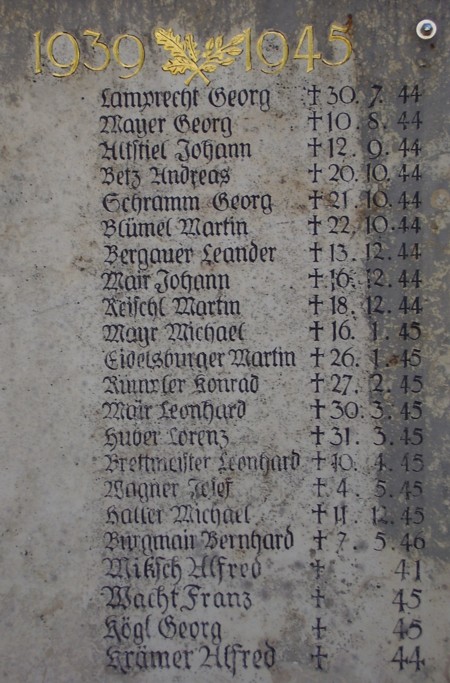 1939 1945
Lamprecht Georg † 30. 7. 44
Mayer Georg † 10. 8. 44
Altstiel Johann † 12. 9. 44
Betz Andreas † 20. 10. 44
Schramm Georg † 21. 10. 44
Blümel Martin † 22. 10. 44
Bergauer Leander † 13. 12. 44
Mair Johann † 16. 12. 44
Reischl Martin † 18. 12. 44
Mayr Michael † 16. 1. 45
Eidelsburger Martin † 26. 1. 45
Konrad † 27. 2. 45
Mair Leonhard † 30. 3. 45
Huber Lorenz † 31. 3. 45
Brettmeister Leonhard † 10. 4. 45
Wagner Josef † 4. 5. 45
Haller Michael † 11. 12. 45
Burgmair Bernhard † 7. 5. 46
Miksch Alfred † 41
Wacht Franz † 45
Kögl Georg † 45
Krämer Alfred † 44